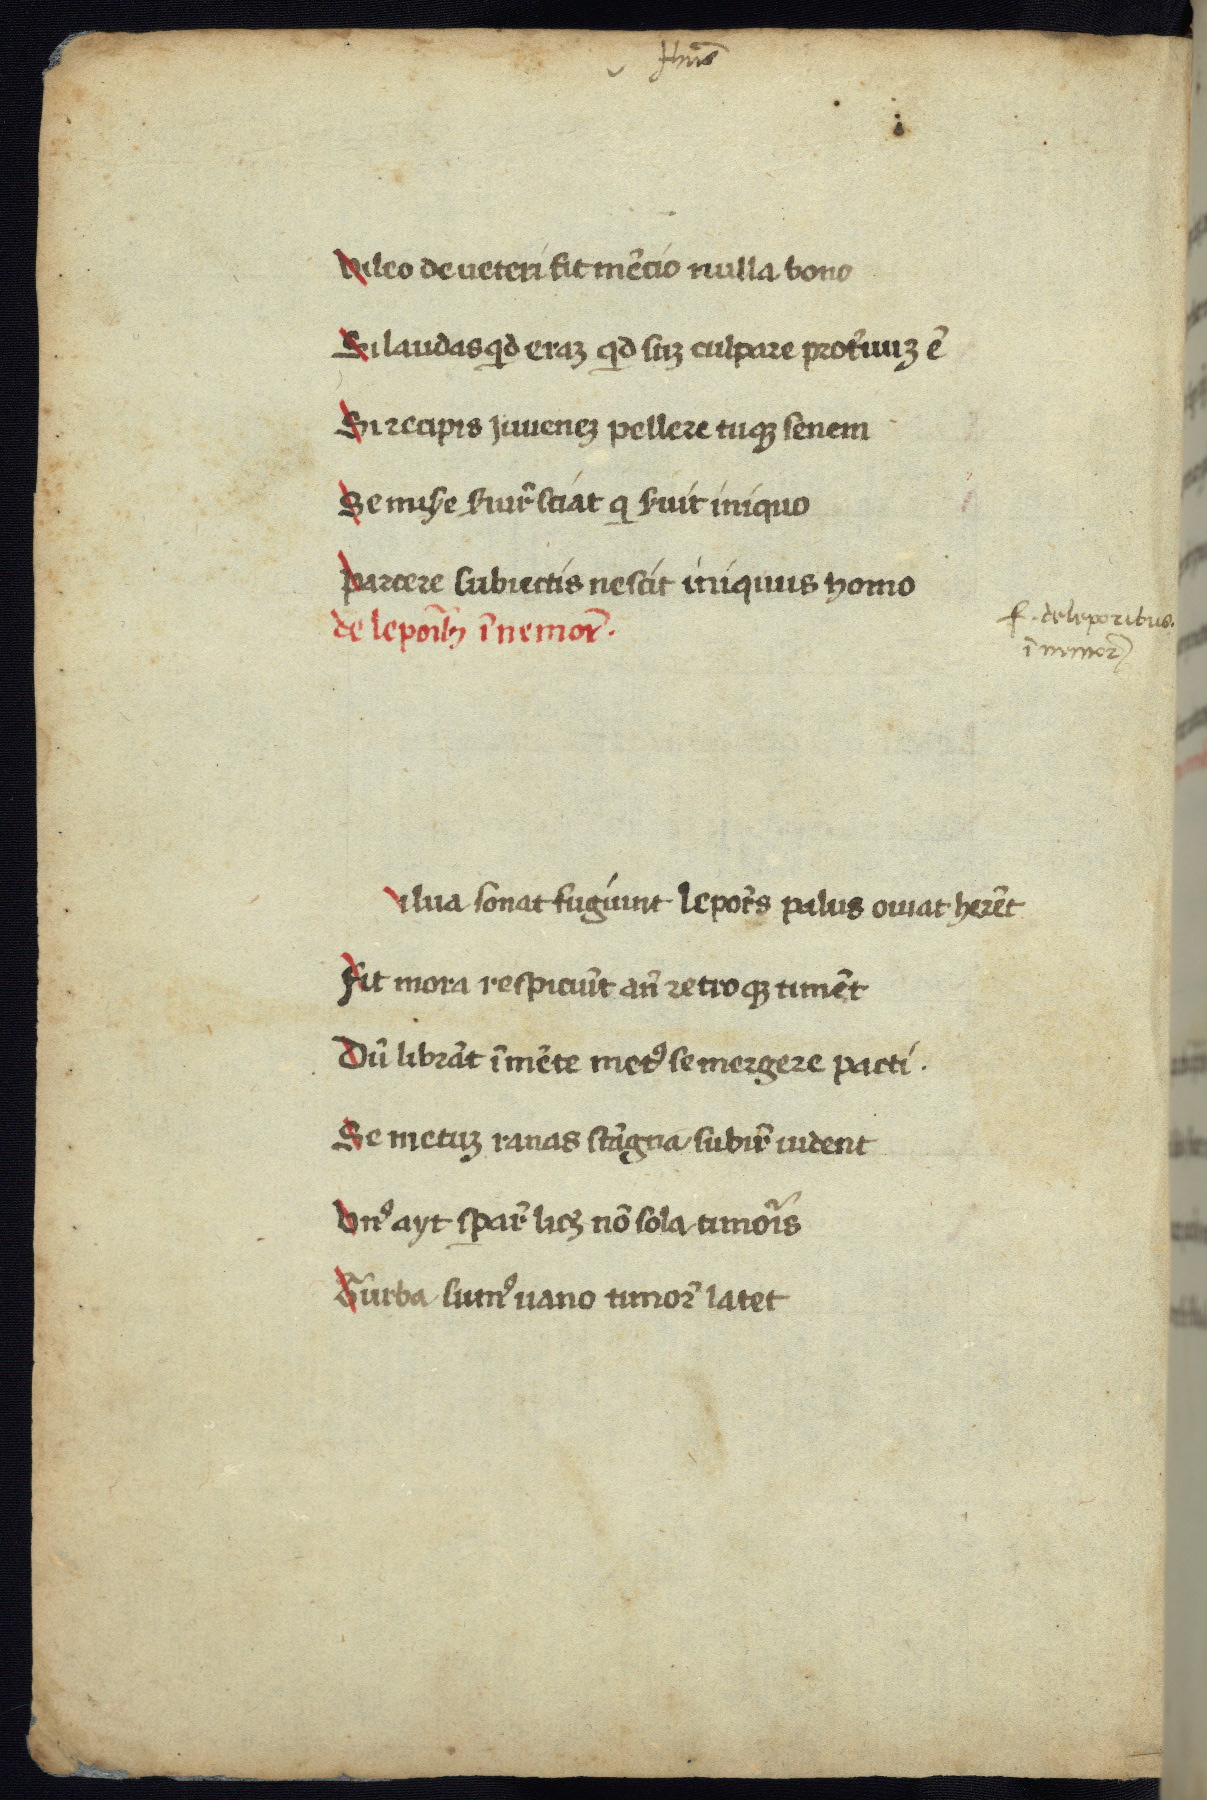 Vileo de ueteri fit mẽcio nulla bono
Si laudas qđ eraʒ qđ suʒ culpare prot̃uuʒ ẽ
Si recipis juueneʒ pellere tuqʒ senem
Se mise suir̃ sciat q̱ suit iniquo
Parcere subiectis nescit iniquus homo
de leporibʒ ĩ nemor̃.
f. de leporibus.
ĩ nemor̃
ilua sonat fugiunt lepor̃s palus ouiat herẽt
Fit mora respiciũt añ retroqʒ timẽt
Dũ librãt ĩ mẽte metꝰ se mergere pacti.
Se metuʒ ranas stãgna subir̃ uident
Vnꝰ ayt sꝑar̃ licʒ nõ sola timoris
Turba sumꝰ uano timor̃ latet